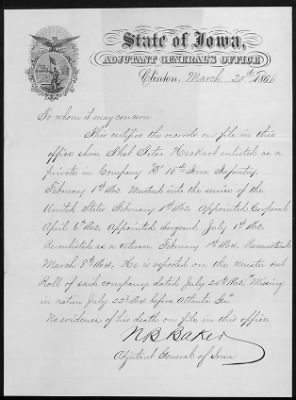 State of Iowa,
ADJUTANT GENERAL'S OFFICE
Clinton, March 20th, 1866
To whom it may concern
This certifies the records on file in this
office show that Peter Heckert enlisted as a
private in Company "D" 16th Iowa Infantry,
February 1st 1862. Mustered into the service of the
United States February 1st 1862. Appointed Corporal
April 6th 1862. Appointed Sergeant July 1st 1862.
Re enlisted as a veteran February 1st 1864. Remustered
March 8th 1864. He is reported on the Muster out
Roll of said company dated July 20th 1865 "Missing
in action July 22d 1864 before Atlanta Ga"
No evidence of his death on file in this office
N B Baker
Adjutant General of Iowa